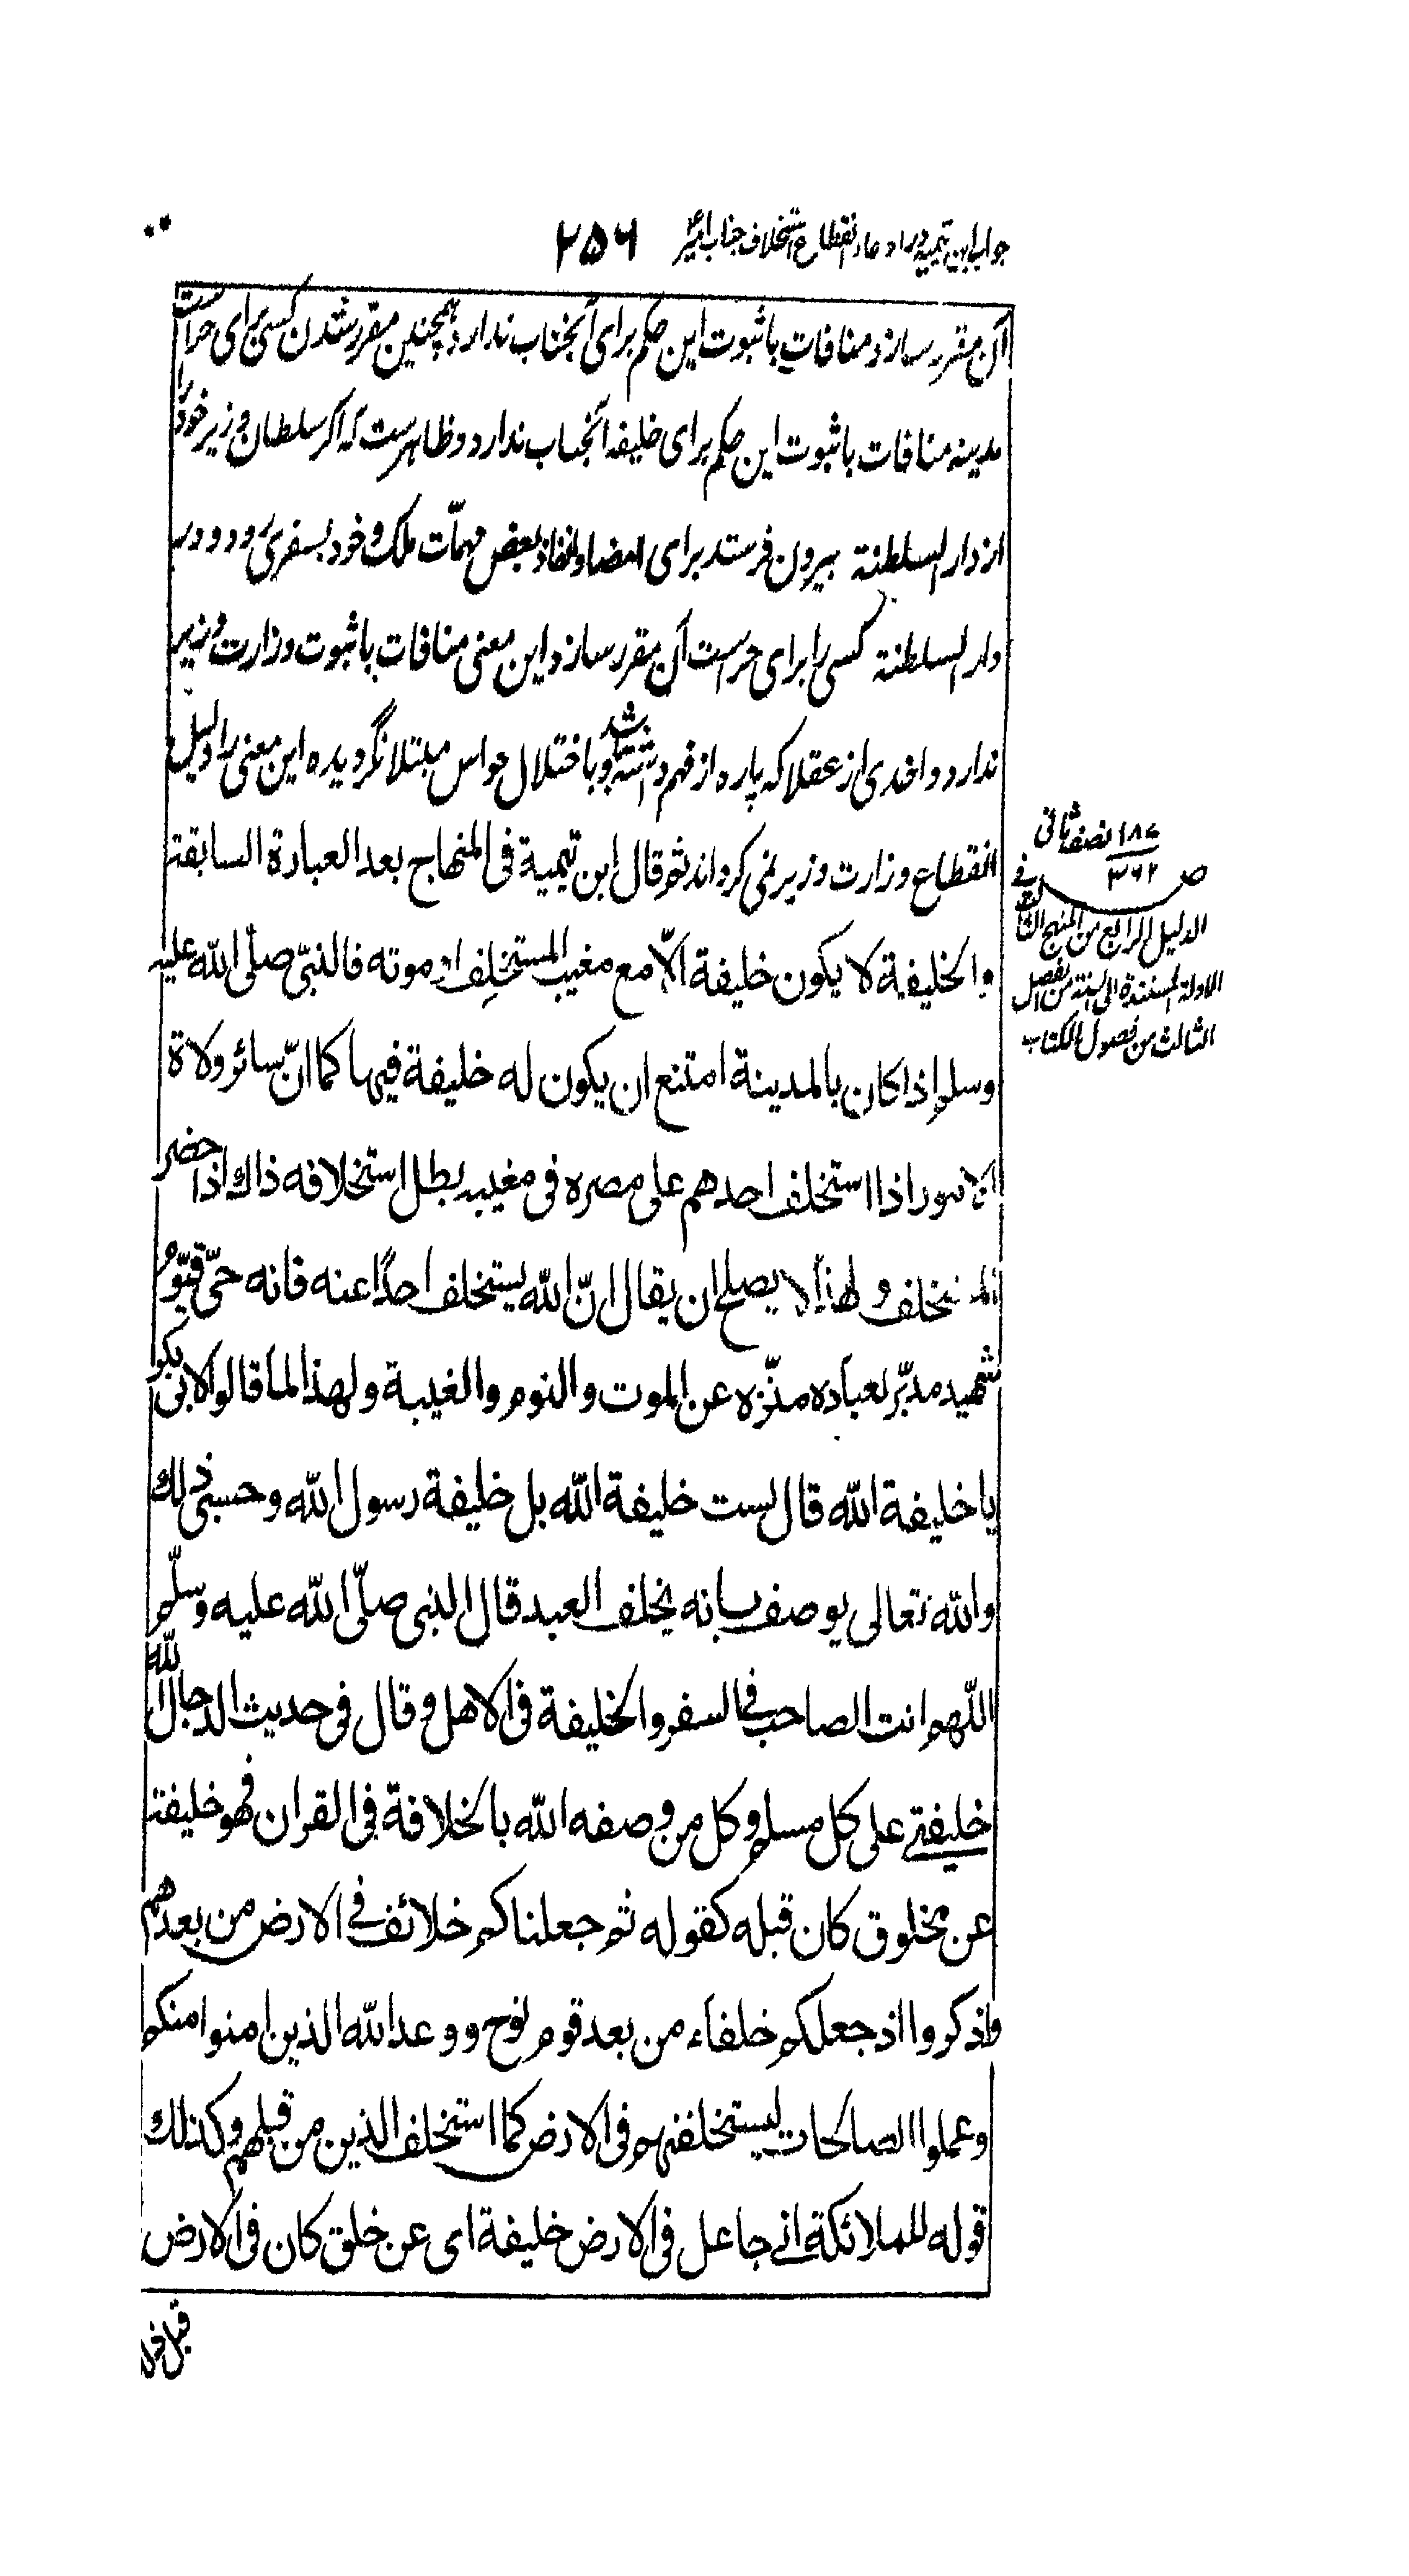 جواب ابن تیمیه در ادعاء انقطاع استخلاف جناب امیرؑ ۲۵۶
آن مقرر سازد منافات با ثبوت این حکم برای آنجناب ندارد همچنین مقرر شدن کسی برای حراست
مدینه منافات با ثبوت این حکم برای خلیفه آنجناب ندارد و ظاهرست که اکر سلطان وزیر خود را
از دار السلطنة بیرون فرستد برای امضا و انفاذ بعض مهمّات ملک و خود بسفری رود و در
دار السلطنة کسی را برای حراست آن مقرر سازد این معنی منافات با ثبوت وزارت وزیر
ندارد و احدی از عقلا که پاره از فهم داشته باشد و باختلال حواس مبتلا نگردیده این معنی را دلیل
انقطاع وزارت وزیر نمی کرداند ثم قال ابن تیمیة فی المنهاج بعد العبارة السابقة
والخلیفة لا یکون خلیفة الّا مع مغیب المستخلِف او موته فالنبّی صلّی اللّه علیه
وسلم اذا کان بالمدینة امتنع ان یکون له خلیفة فیها کما انّ سائر ولاة
الامور اذا استخلف احدهم علی مصره فی مغیبه بطل استخلافه ذاك اذا حضر
المستخلف و لهذا لا یصلح ان یقال انّ اللّه یستخلف احدًا عنه فانه حیّ قیّوم
شهید مدبّر لعباده منزّه عن الموت والنوم والغیبة ولهذا لما قالوا لابی بکر
یا خلیفة اللّه قال لست خلیفة اللّه بل خلیفة رسول اللّه وحسبی ذلك
واللّه تعالی یوصف بانه یخلف العبد قال النبی صلّی اللّه علیه وسلّم
اللّهم انت الصاحب فی السفر والخلیفة فی الاهل وقال فی حدیث الدجال اللّه
خلیفتی علی کل مسلم وکل من وصفه اللّه بالخلافة فی القران فهو خلیفة
عن مخلوق کان قبله کقوله ثم جعلناکم خلائف فی الارض من بعدهم
واذکروا اذ جعلکم خلفاء من بعد قوم نوح و وعد اللّه الذین امنوا منکم
وعملوا الصالحات لیستخلفنهم فی الارض کما استخلف الذین من قبلهم وکذلك
قوله للملائکة انی جاعل فی الارض خلیفة ای عن خلق کان فی الارض
نصف ثانی
ص ۳۶۲
الدلیل الرابع من المنهج الثانی فی
الادلة المستندة الی السنة من الفصل
الثالث من فصول الکتاب